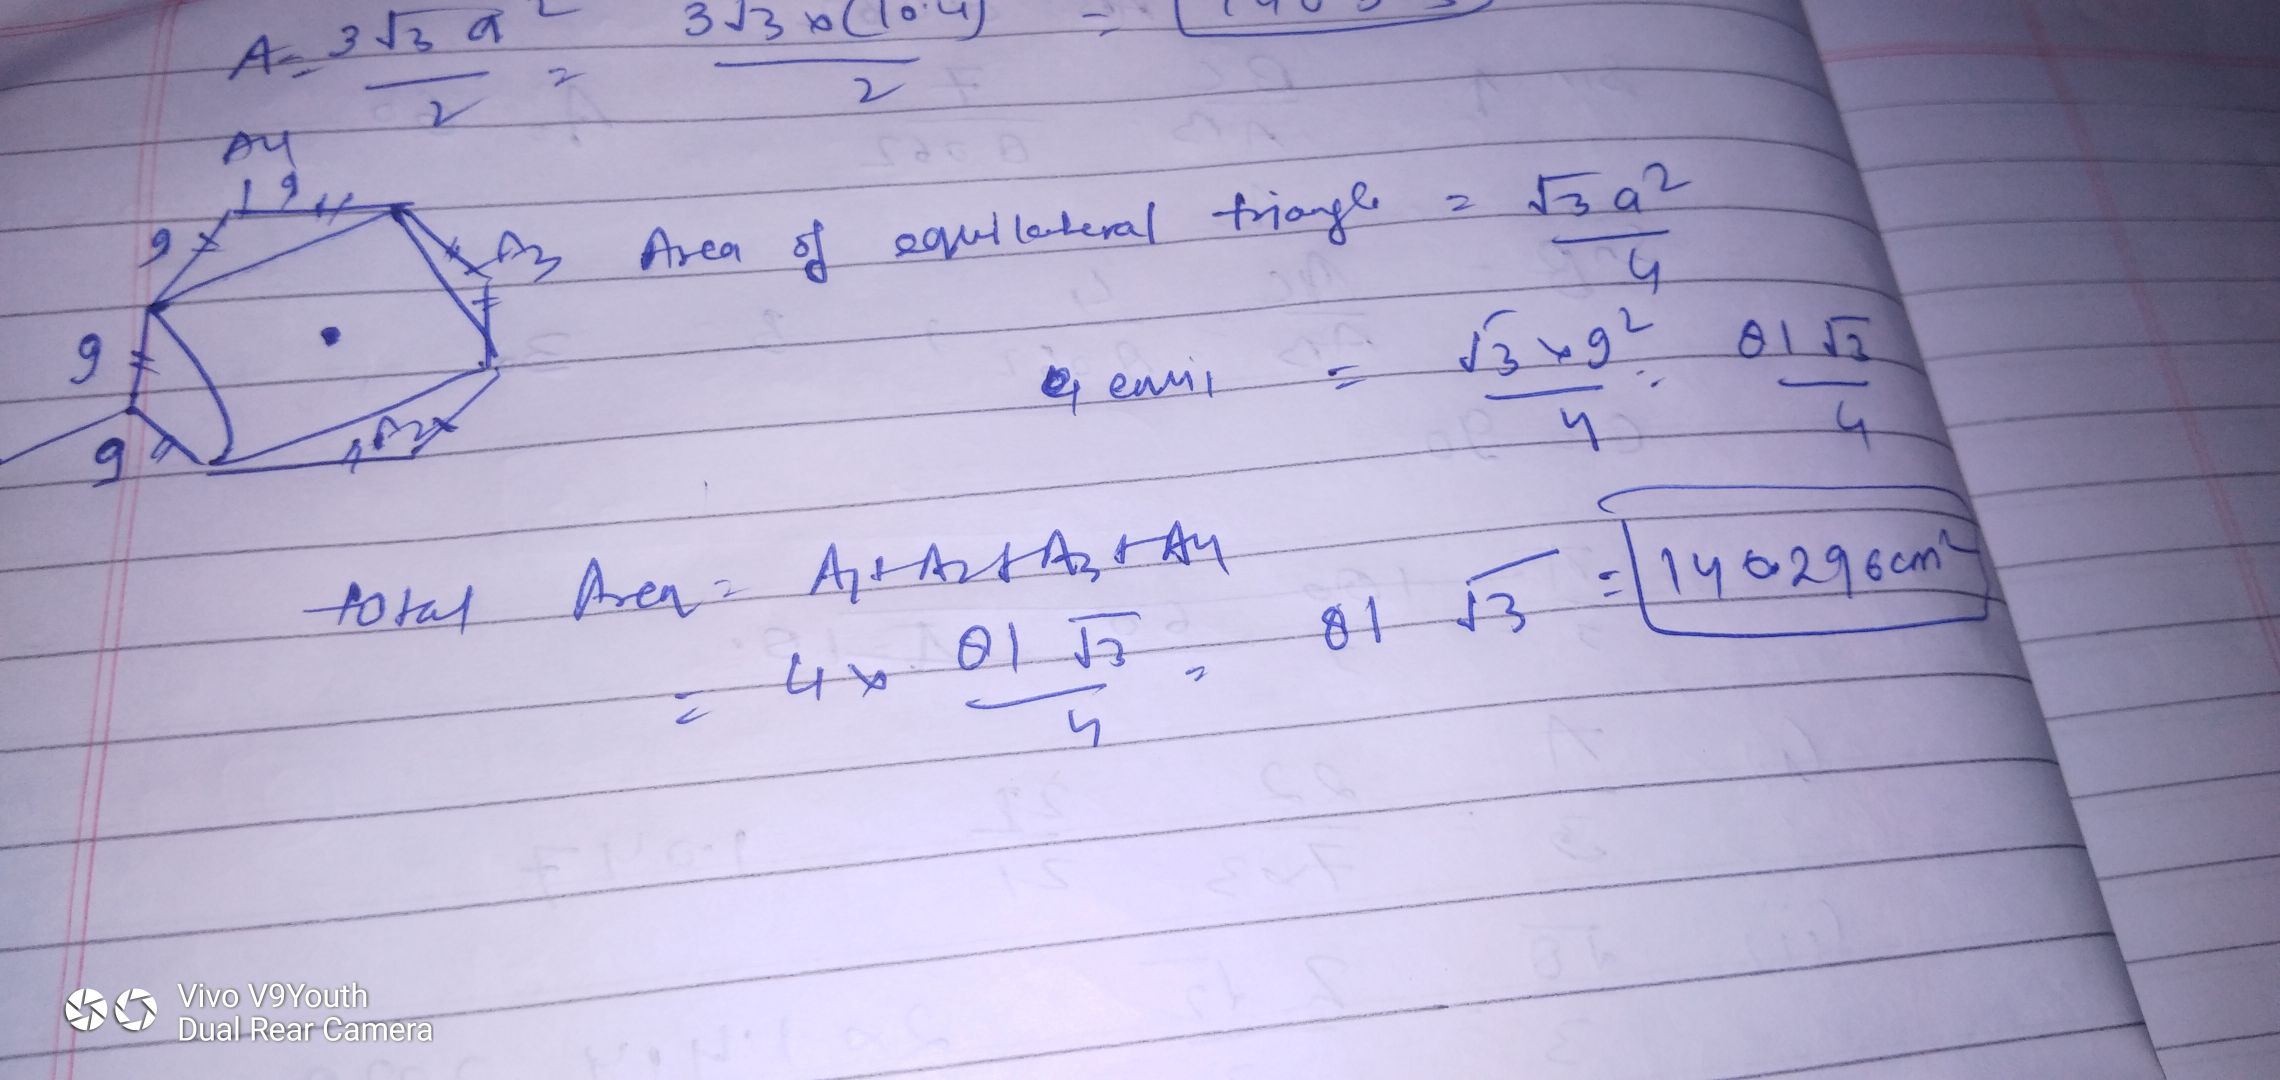 A = 3√3 a² / 2 = 3√3 × (10.4) / 2 =
A4
9
9
A3
Area of equilateral triangle = √3 a² / 4
9
= √3 × 9² / 4 = 81 √3 / 4
A2
9
total Area = A1 + A2 + A3 + A4
= 4 × 81 √3 / 4 = 81 √3 = 140.296 cm²
Vivo V9Youth
Dual Rear Camera